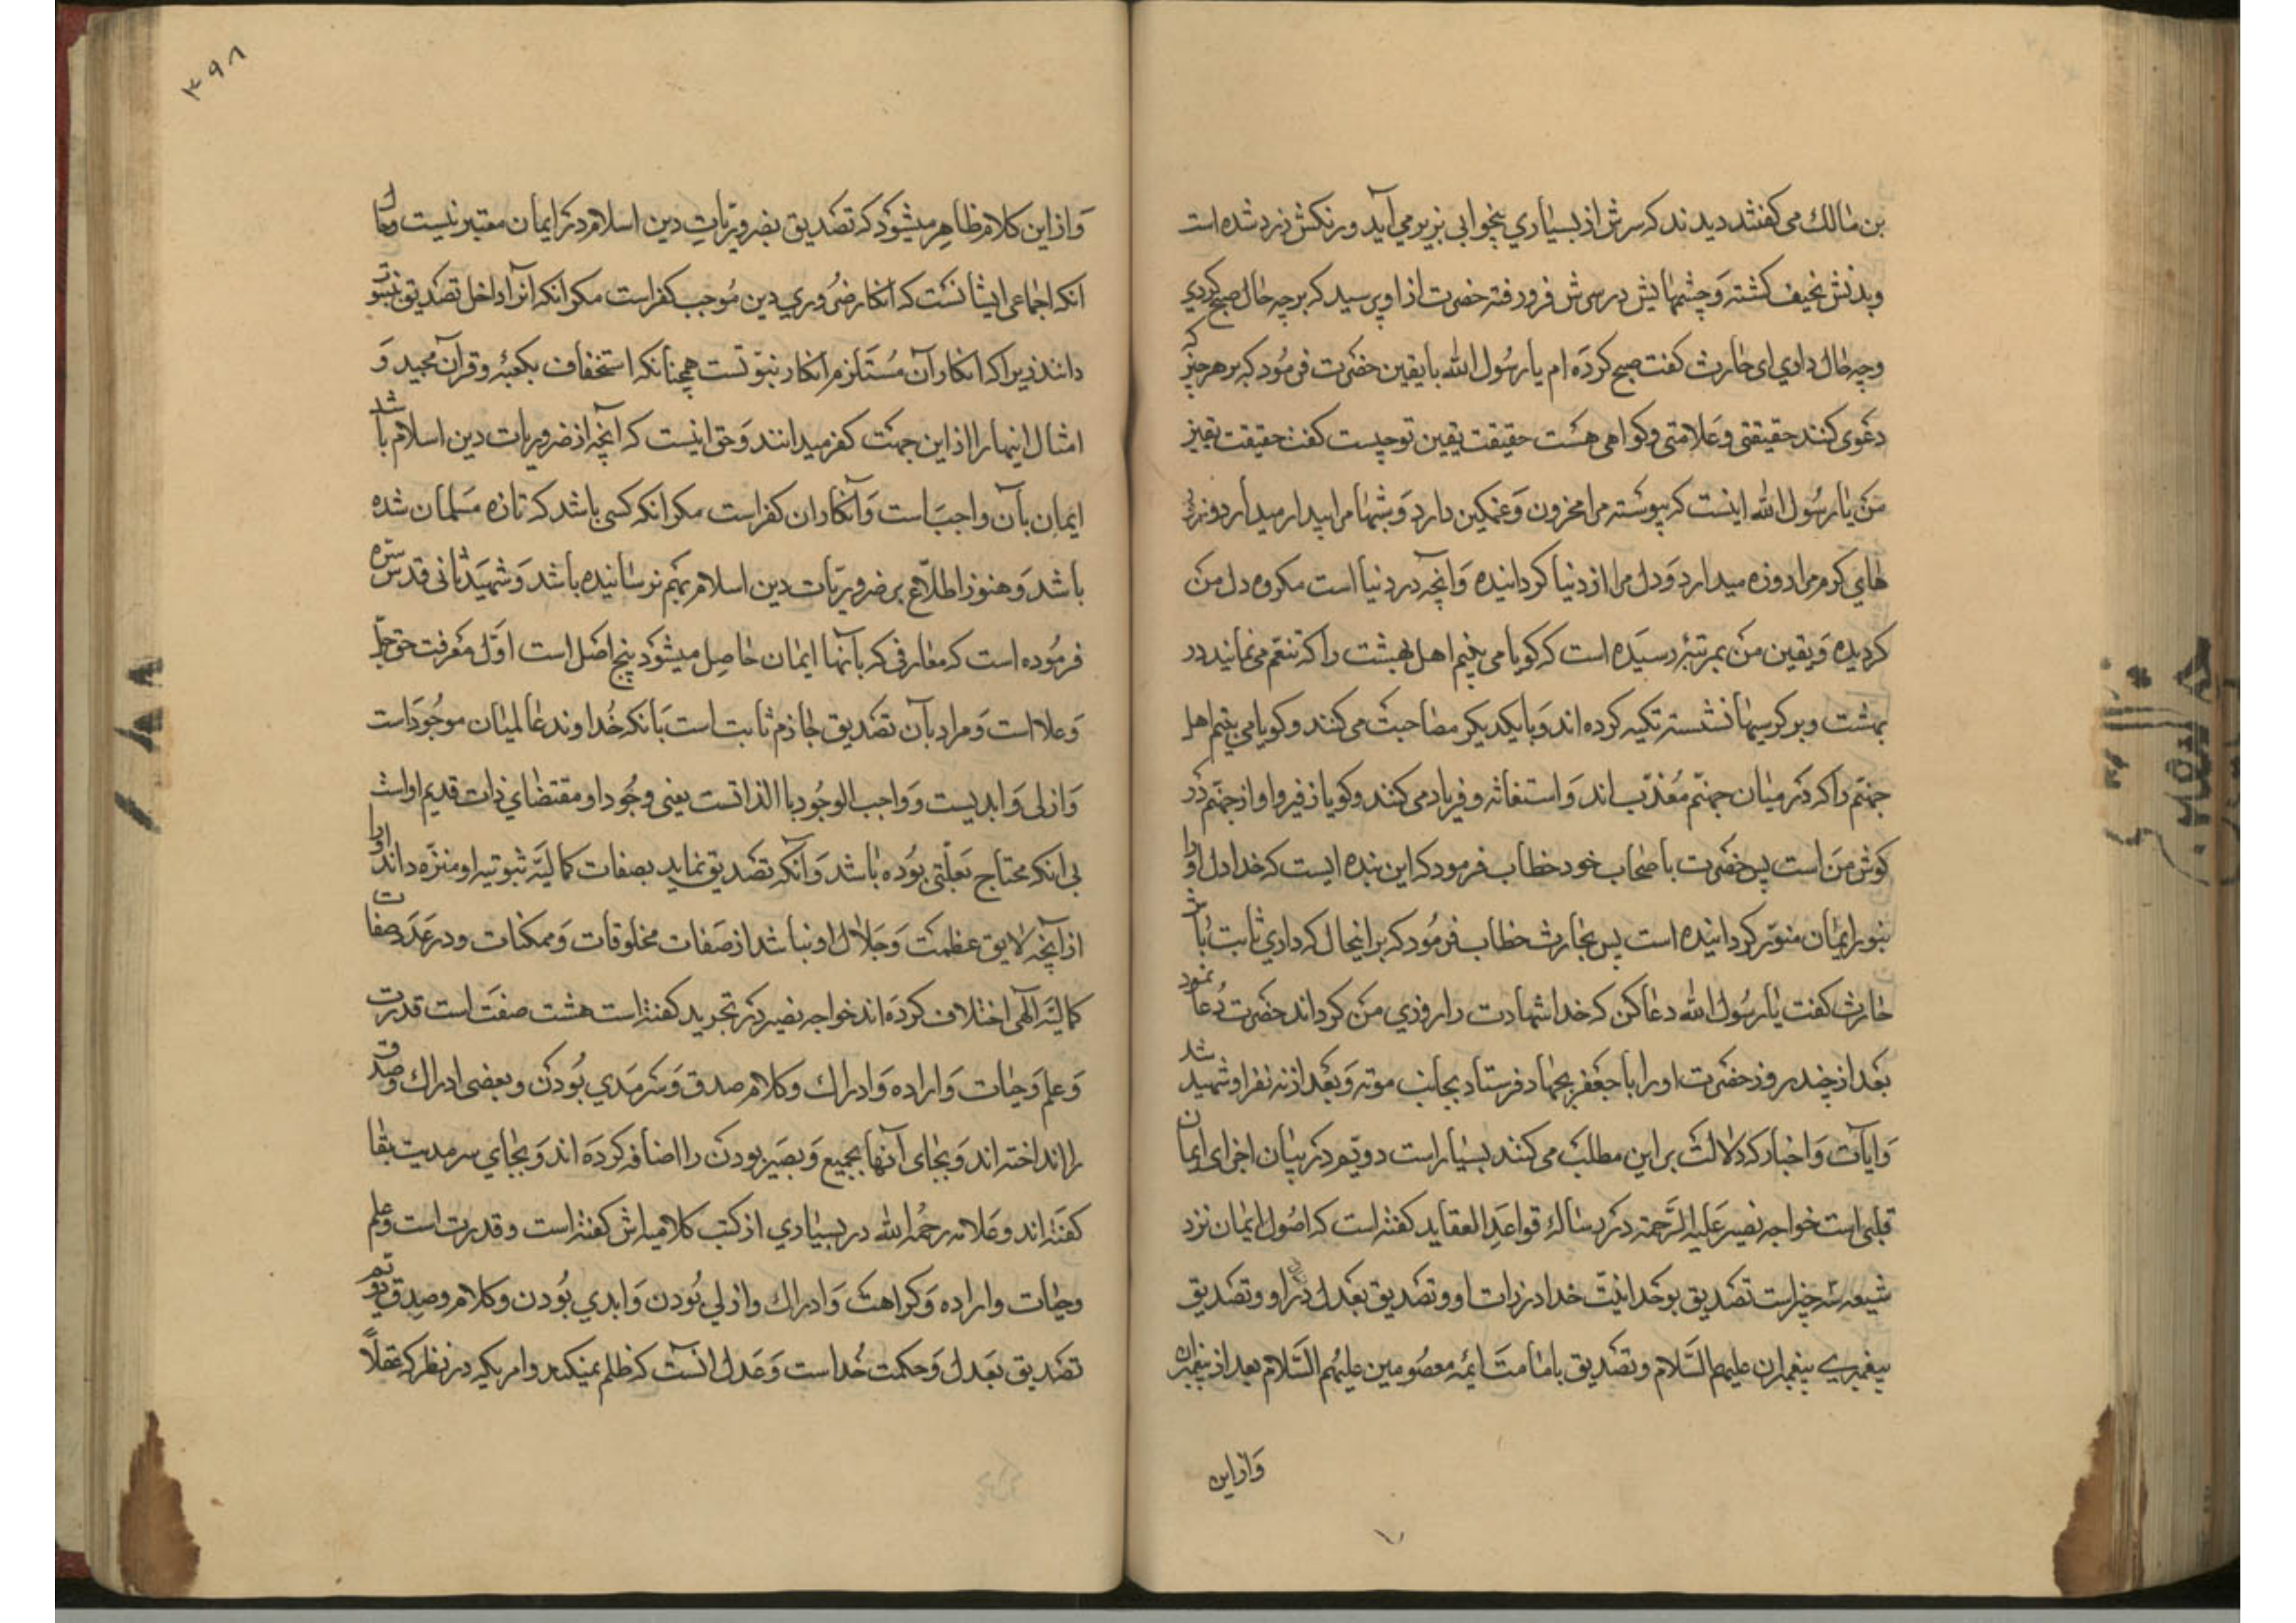 بن مالك می کفتند دیدند که سرش از بسیاري بیخوابی بزیر می آید و رنکش زرد شده است
و بدنش نحیف کشته و چشمهایش در سرش فرو رفته حضرت از او پرسید که برچه حال صبح کردي
و چه حال داري ای حارث کفت صبح کرده ام یا رسول الله با یقین حضرت فرمود که بر هر چیز که
دعوی کنند حقیقتی و علامتی و کواهی هست حقیقت یقین تو چیست کفت حقیقت یقین
من یا رسول الله اینست که پیوسته مرا محزون و غمکین دارد و شبها مرا بیدار میدارد و روز
های کرم مرا روزه میدارد و دل مرا از دنیا کردانیده و آنچه در دنیا است مکروه دل من
کردیده و یقین من بمرتبۀ رسیده است که کویا می بینم اهل بهشت را که تنعم می نمایند در
بهشت و بر کرسیها نشسته تکیه کرده اند و با یکدیکر مصاحبت می کنند و کویا می بینم اهل
جهنم را که در میان جهنم معذب اند و استغاثه و فریاد می کنند و کویا زفیر و اواز جهنم در
کوش من است پس حضرت با صحاب خود خطاب فرمود که این بنده ایست که خدا دل او را
بنور ایمان منور کردانیده است پس بحارث خطاب فرمود که بر اینحال که داري ثابت باش
حارث کفت یا رسول الله دعا کن که خدا شهادت را روزي من کرداند حضرت دعا نمود
بعد از چند روز حضرت او را با جعفر بجهاد فرستاد بجانب موته و بعد از نه نفر او شهید شد
و آیات و اخبار که دلالت بر این مطلب می کنند بسیار است دویم در بیان اجزای ایمان
قلبی است خواجه نصیر علیه الرحمة در رساله قواعد العقاید کفته است که اصول ایمان نزد
شیعه سه چیز است تصدیق بوحدانیت خدا در ذات او و تصدیق بعدل در افعال او و تصدیق
پیغمبري پیغمبران علیهم السلام و تصدیق بامامت ایمه معصومین علیهم السلام بعد از پیغمبران
و از این
۳۹۸
و از این کلام ظاهر میشود که تصدیق بضروریات دین اسلام در ایمان معتبر نیست و حال
انکه اجماعی ایشانست که انکار ضروري دین موجب کفر است مکر انکه آنرا داخل تصدیق نبوت
دانند زیرا که انکار آن مستلزم انکار نبوتست همچنانکه استخفاف بکعبه و قرآن مجید و
امثال اینها را از این جهت کفر میدانند و حق اینست که آنچه از ضروریات دین اسلام باشد
ایمان بآن واجب است و انکار ان کفر است مکر انکه کسی باشد که تازه مسلمان شده
باشد و هنوز اطلاع بر ضروریات دین اسلام بهم نرسانیده باشد و شهید ثانی قدس سره
فرموده است که معارفی که بآنها ایمان حاصل میشود پنج اصل است اول معرفت حق جل
و علا است و مراد بآن تصدیق جازم ثابت است بانکه خداوند عالمیان موجود است
و ازلی و ابدیست و واجب الوجود با الذاتست یعنی وجود او مقتضاي ذات قدیم اوست
بی انکه محتاج بعلتی بوده باشد و آنکه تصدیق نماید بصفات کمالیه ثبوتیه او و منزه داند او را
از آنچه لایق عظمت و جلال او نباشد از صفات مخلوقات و ممکنات و در عدد صفات
کمالیه الهی اختلاف کرده اند خواجه نصیر در تجرید کفته است هشت صفت است قدرت
و علم و حیات و اراده و ادراك و کلام صدق و سرمدي بودن و بعضی ادراك و صدق
را انداخته اند و بجای آنها سمیع و بصیر بودن را اضافه کرده اند و بجاي سرمدیت بقا
کفته اند و علامه رحمه الله در بسیاري از کتب کلامیه اش کفته است و قدرت است و علم
و حیات و اراده و کراهت و ادراك و ازلی بودن و ابدي بودن و کلام و صدق دویم
تصدیق بعدل و حکمت خداست و عدل انست که ظلم نمیکند و امریکه در نظر که عقلاً